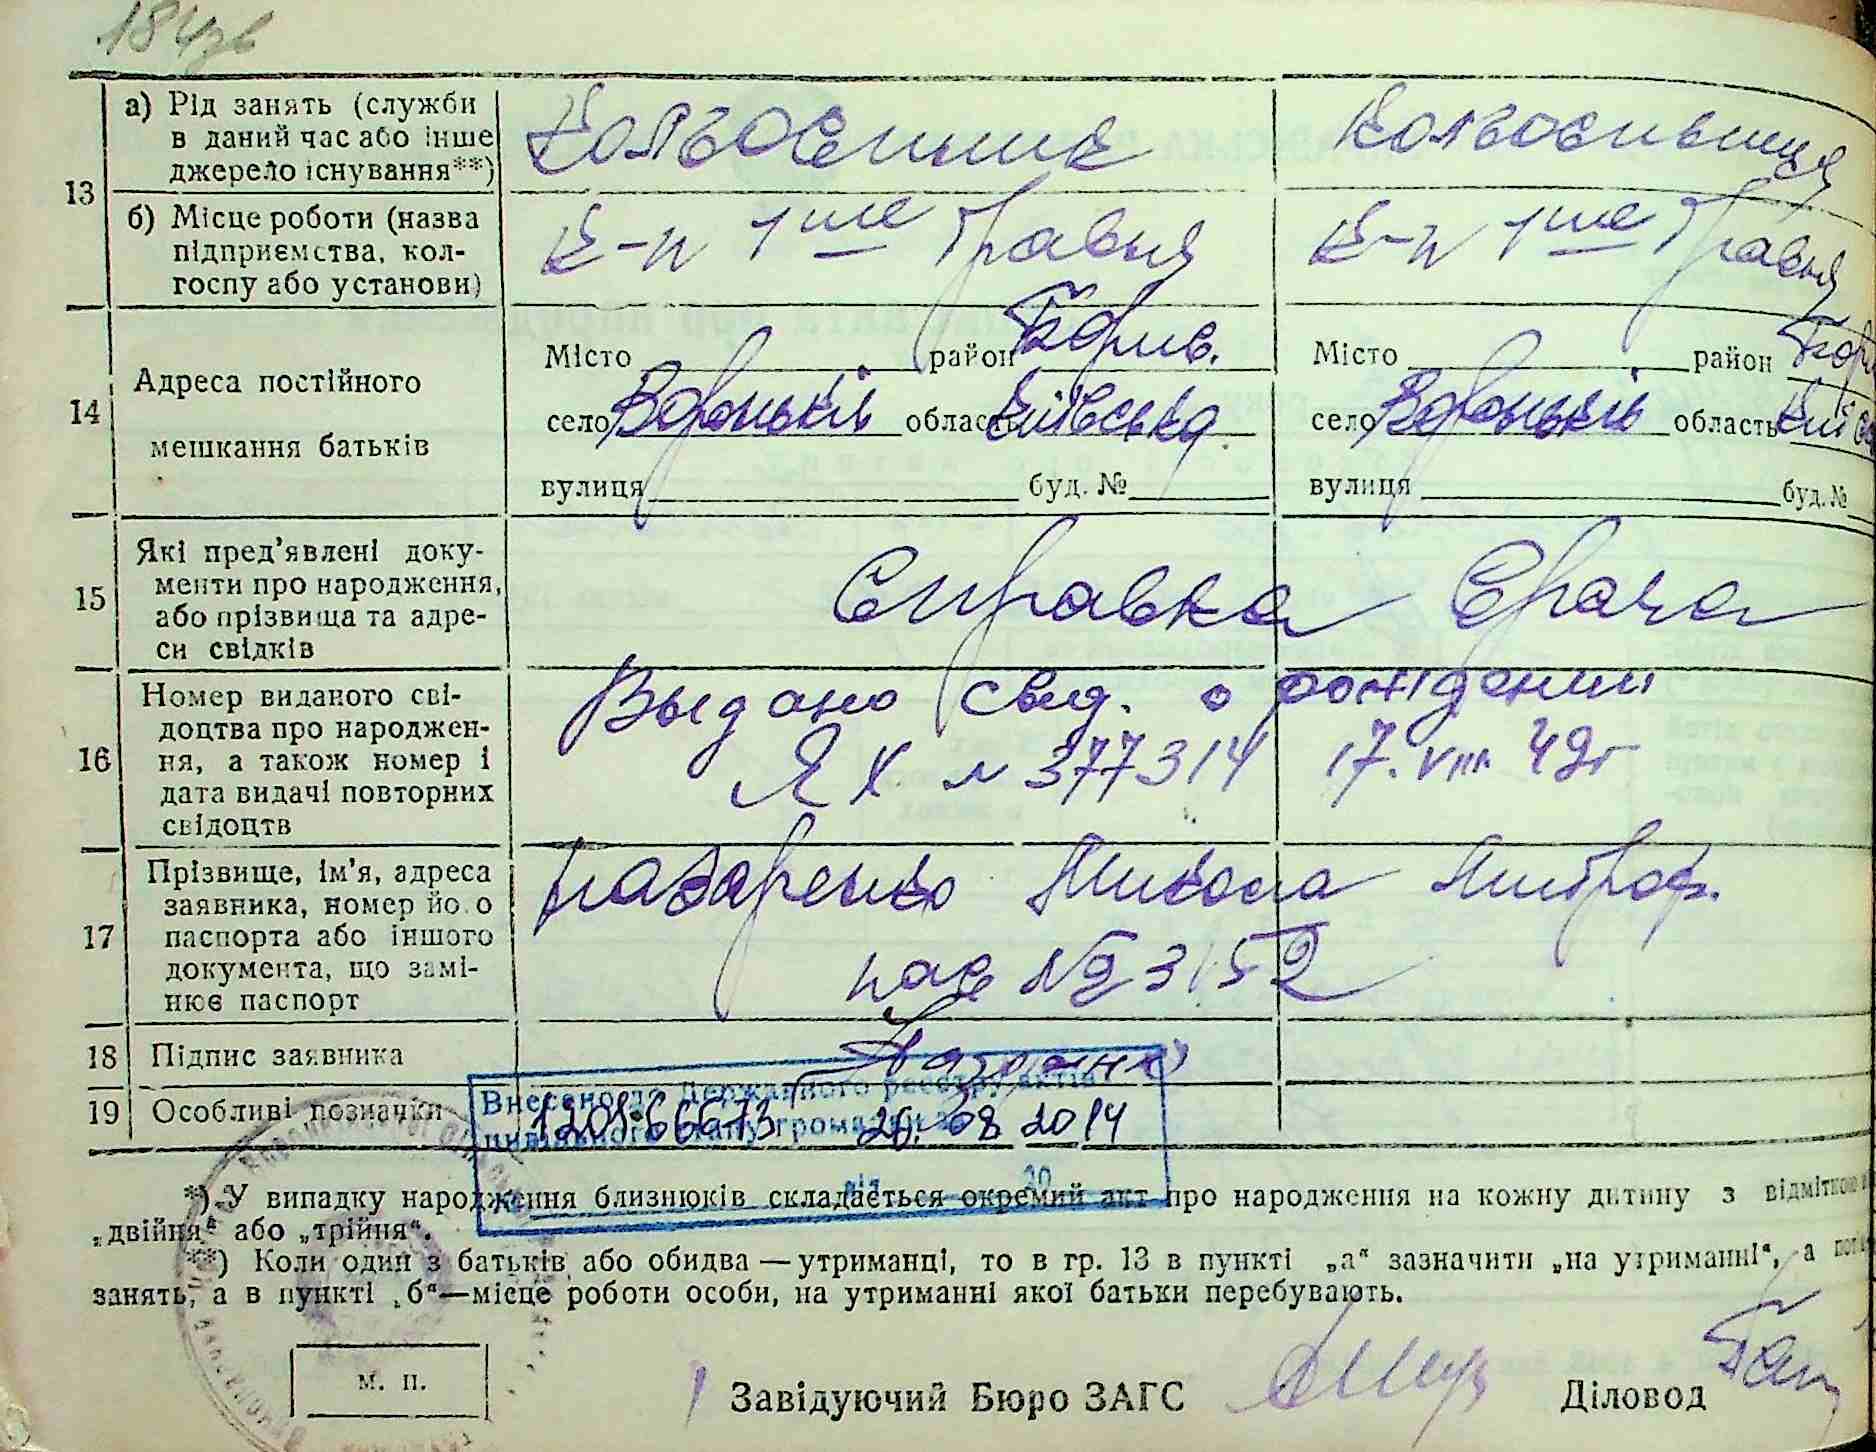 184зв
13
а) Рід занять (служби
в даний час або інше
джерело існування**)
Колгоспник
Колгоспниця
б) Місце роботи (назва
підприємства, кол-
госпу або установи)
К-п 1ше Травня
К-п 1ше Травня
14
Адреса постійного
мешкання батьків
Місто район Борис.
село Вороньків область Київська
вулиця буд. №
Місто район Бори
село Вороньків область Київс
вулиця буд. №
15
Які пред'явлені доку-
менти про народження,
або прізвища та адре-
си свідків
Справка Врача
16
Номер виданого сві-
доцтва про народжен-
ня, а також номер і
дата видачі повторних
свідоцтв
Выдано свид. о рождении
ЯХ № 377314 17.VIII 49г
17
Прізвище, ім'я, адреса
заявника, номер його
паспорта або іншого
документа, що замі-
нює паспорт
Назаренко Микола Митроф.
пас №3152
18 Підпис заявника
19 Особливі позначки
Внесено до Державного реєстру актів
цивільного стану громадян за
20.08 2014
№ від 20
*) У випадку народження близнюків складається окремий акт про народження на кожну дитину з відміткою
„двійня“ або „трійня“.
**) Коли один з батьків або обидва — утриманці, то в гр. 13 в пункті „а“ зазначити „на утриманні“, а
занять, а в пункті „б“—місце роботи особи, на утриманні якої батьки перебувають.
м. п.
Завідуючий Бюро ЗАГС
Діловод